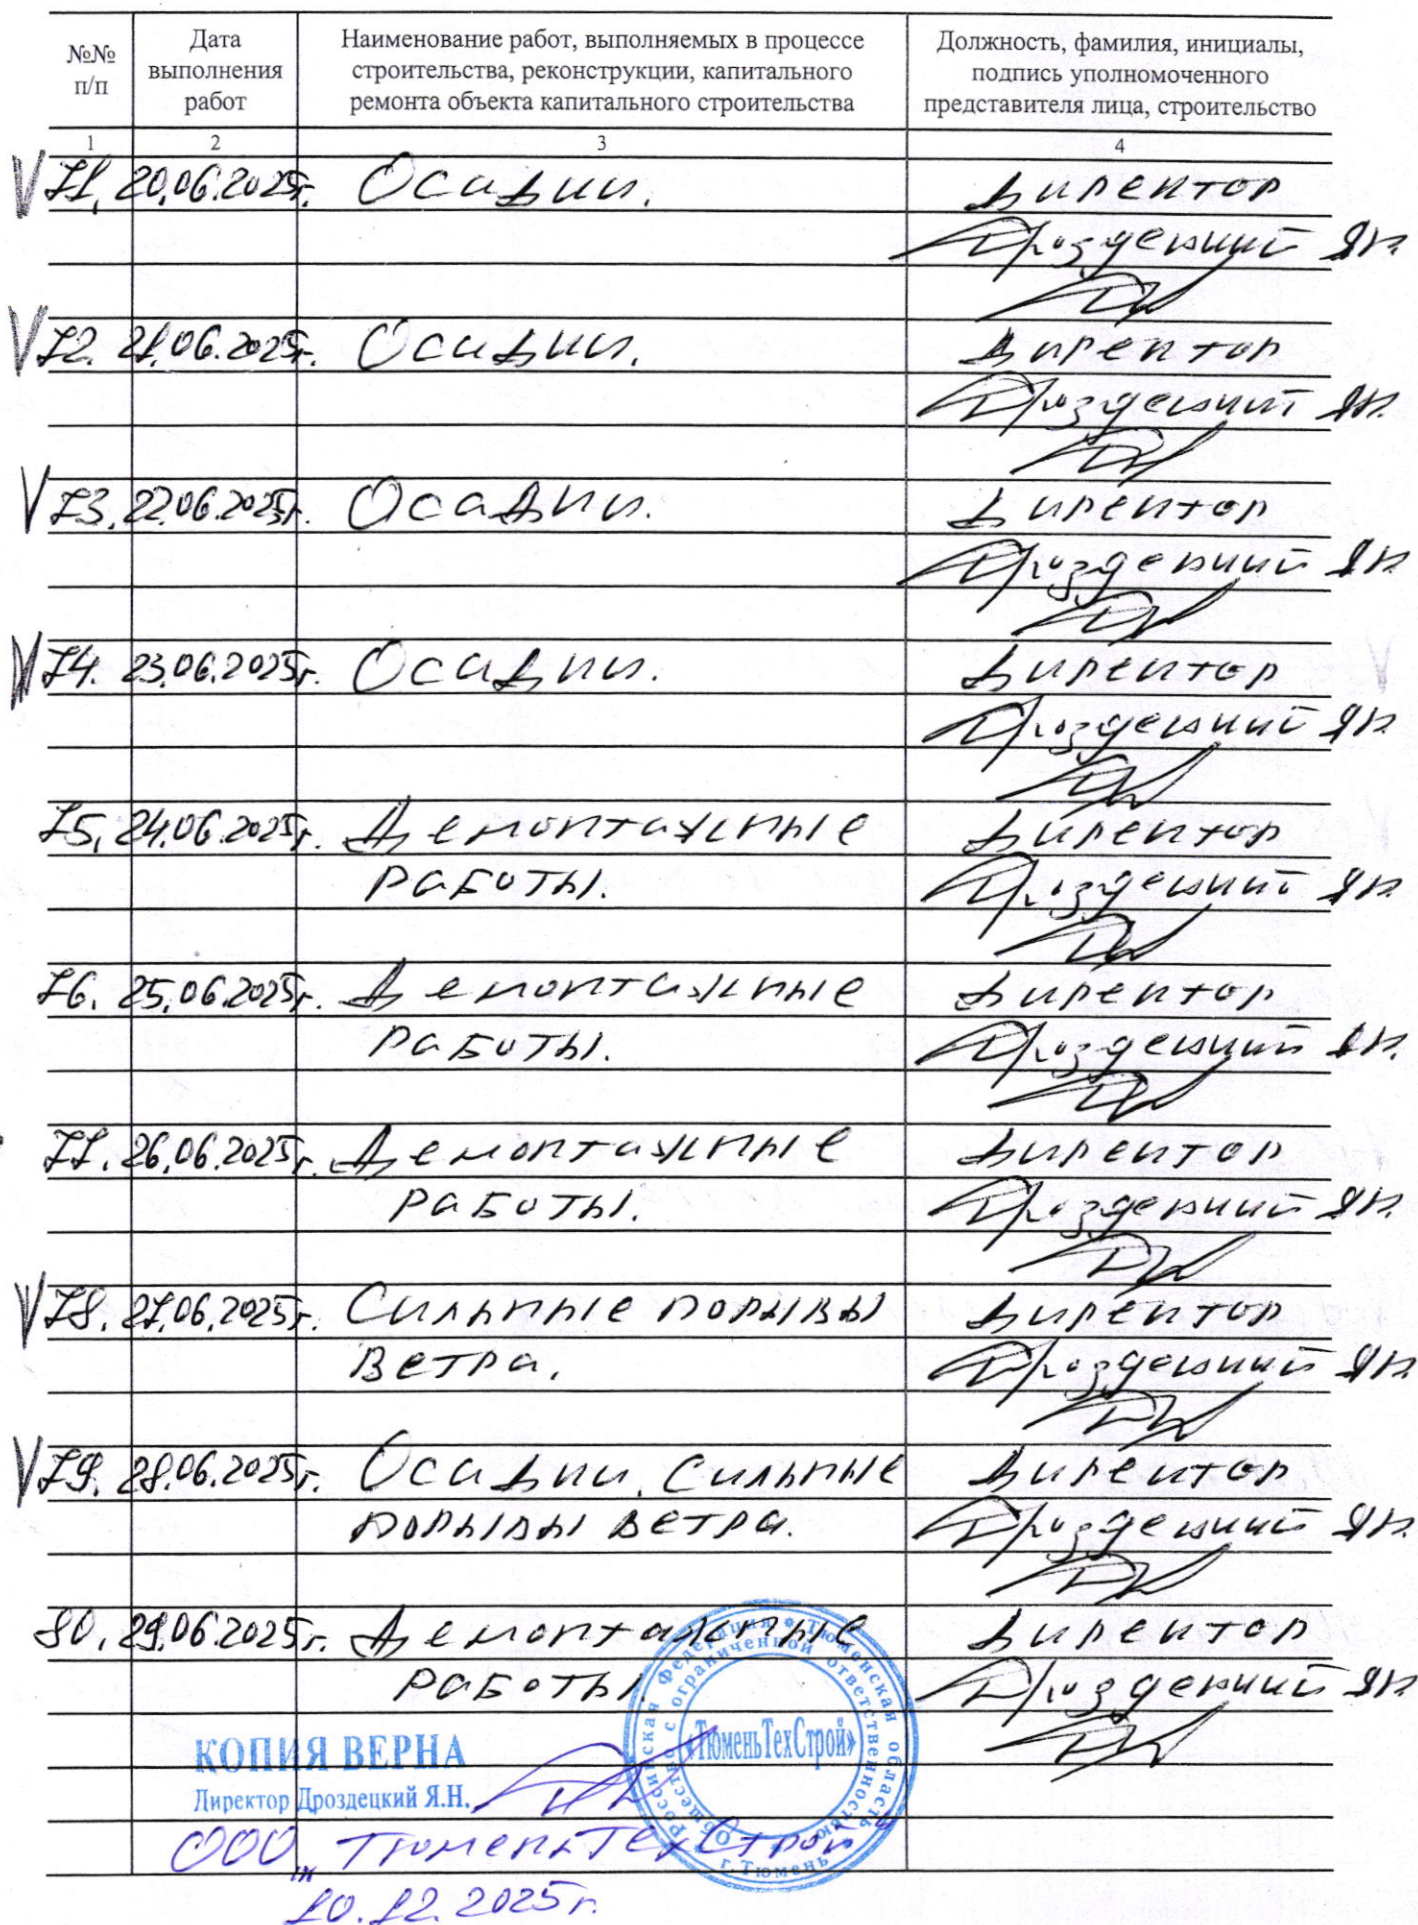 №№ п/п
Дата выполнения работ
Наименование работ, выполняемых в процессе строительства, реконструкции, капитального ремонта объекта капитального строительства
Должность, фамилия, инициалы, подпись уполномоченного представителя лица, строительство
1 2 3 4
71. 20.06.2025г. Осадки. Директор
Дроздецкий ЯН.
72. 21.06.2025г. Осадки. Директор
Дроздецкий ЯН.
73. 22.06.2025г. Осадки. Директор
Дроздецкий ЯН
74. 23.06.2025г. Осадки. Директор
Дроздецкий ЯН
75. 24.06.2025г. Демонтажные Директор
работы. Дроздецкий ЯН
76. 25.06.2025г. Демонтажные Директор
работы. Дроздецкий ЯН.
77. 26.06.2025г. Демонтажные Директор
работы. Дроздецкий ЯН.
78. 27.06.2025г. Сильные порывы Директор
ветра. Дроздецкий ЯН.
79. 28.06.2025г. Осадки. Сильные Директор
порывы ветра. Дроздецкий ЯН.
80. 29.06.2025г. Демонтажные Директор
работы. Дроздецкий ЯН
КОПИЯ ВЕРНА
Директор Дроздецкий Я.Н.
ООО "ТюменьТехСтрой"
10.12.2025г.
Российская Федерация * Тюменская область * г. Тюмень
Общество с ограниченной ответственностью
«ТюменьТехСтрой»